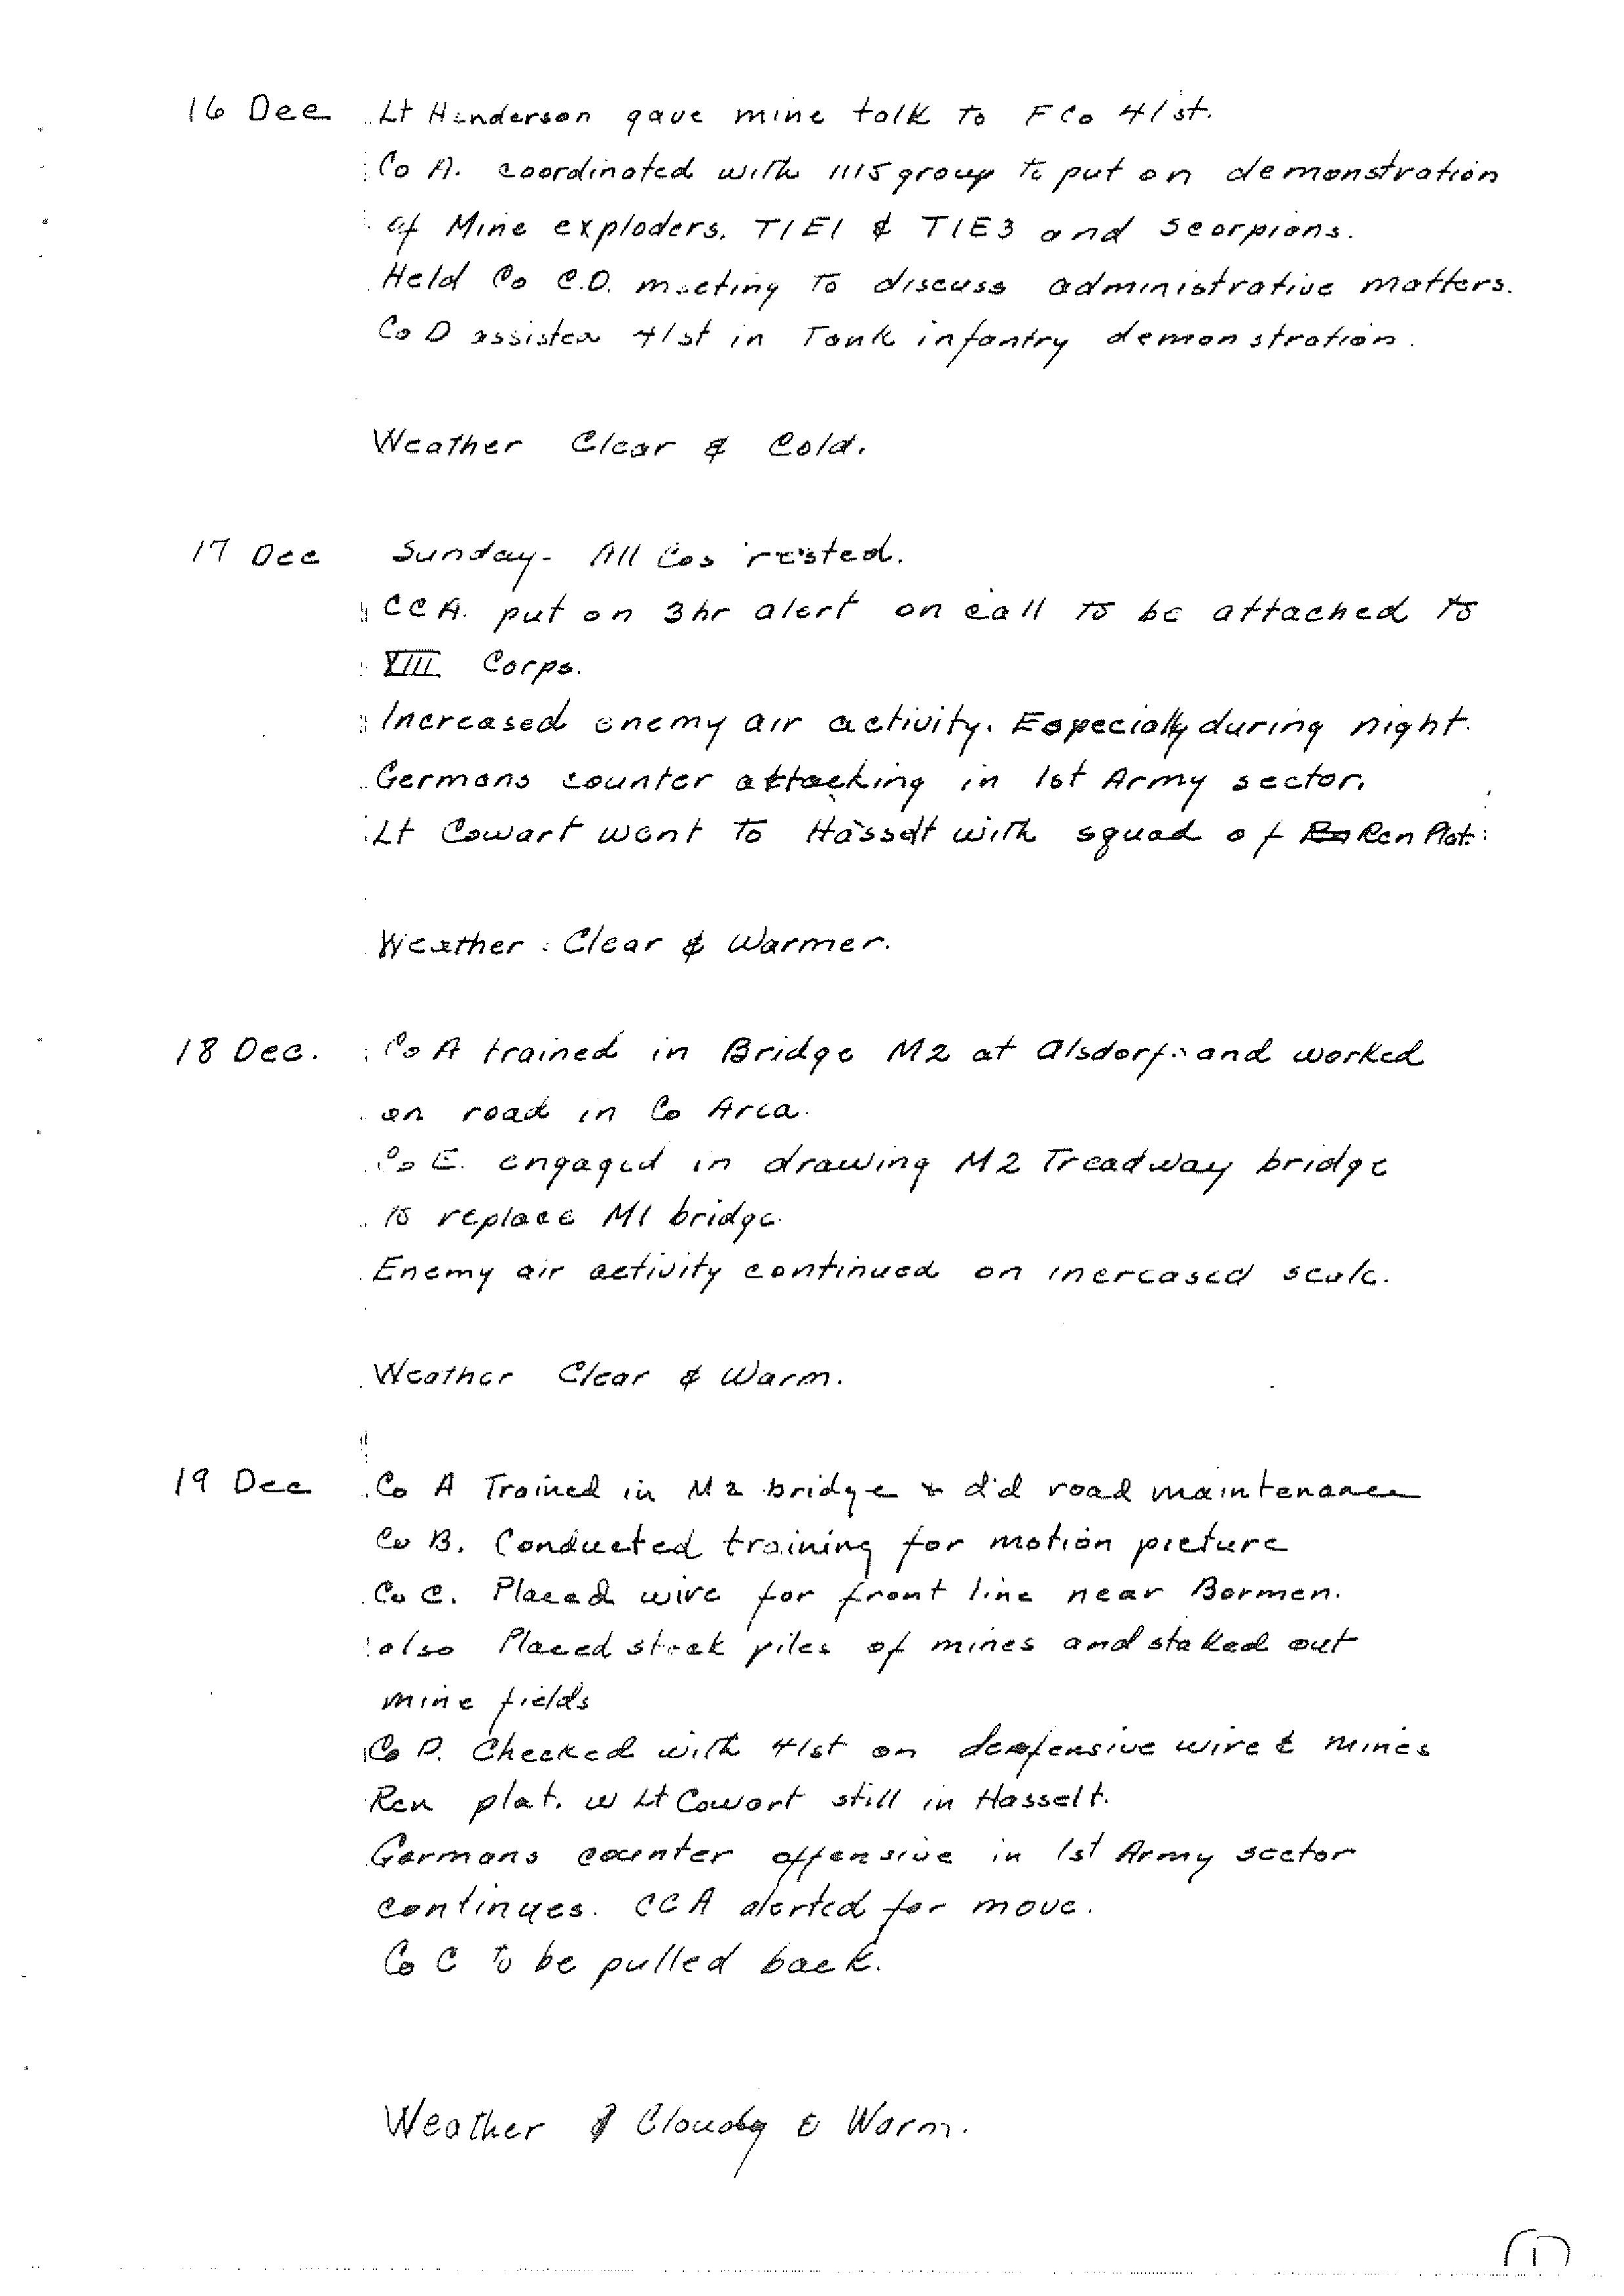 16 Dec Lt Henderson gave mine talk to F Co 41st.
Co A. coordinated with 1115 group to put on demonstration
of Mine exploders. T1E1 & T1E3 and Scorpions.
Held Co C.O. meeting to discuss administrative matters.
Co D assisted 41st in Tank infantry demonstration.
Weather Clear & Cold.
17 Dec Sunday - All Cos rested.
CCA. put on 3hr alert on call to be attached to
XIII Corps.
Increased enemy air activity. Especially during night.
Germans counter attacking in 1st Army sector.
Lt Cowart went to Hasselt with squad of Rcn Plat.
Weather : Clear & Warmer.
18 Dec. Co A trained in Bridge M2 at Alsdorf and worked
on road in Co Area.
Co E. engaged in drawing M2 Treadway bridge
to replace M1 bridge.
Enemy air activity continued on increased scale.
Weather Clear & Warm.
19 Dec Co A Trained in M2 bridge & did road maintenance
Co B. Conducted training for motion picture
Co C. Placed wire for front line near Barmen.
also Placed stock piles of mines and staked out
mine fields
Co D. Checked with 41st on defensive wire & mines
Rcn plat. w Lt Cowart still in Hasselt.
Germans counter offensive in 1st Army sector
continues. CCA alerted for move.
Co C to be pulled back.
Weather Cloudy & Warm.
1